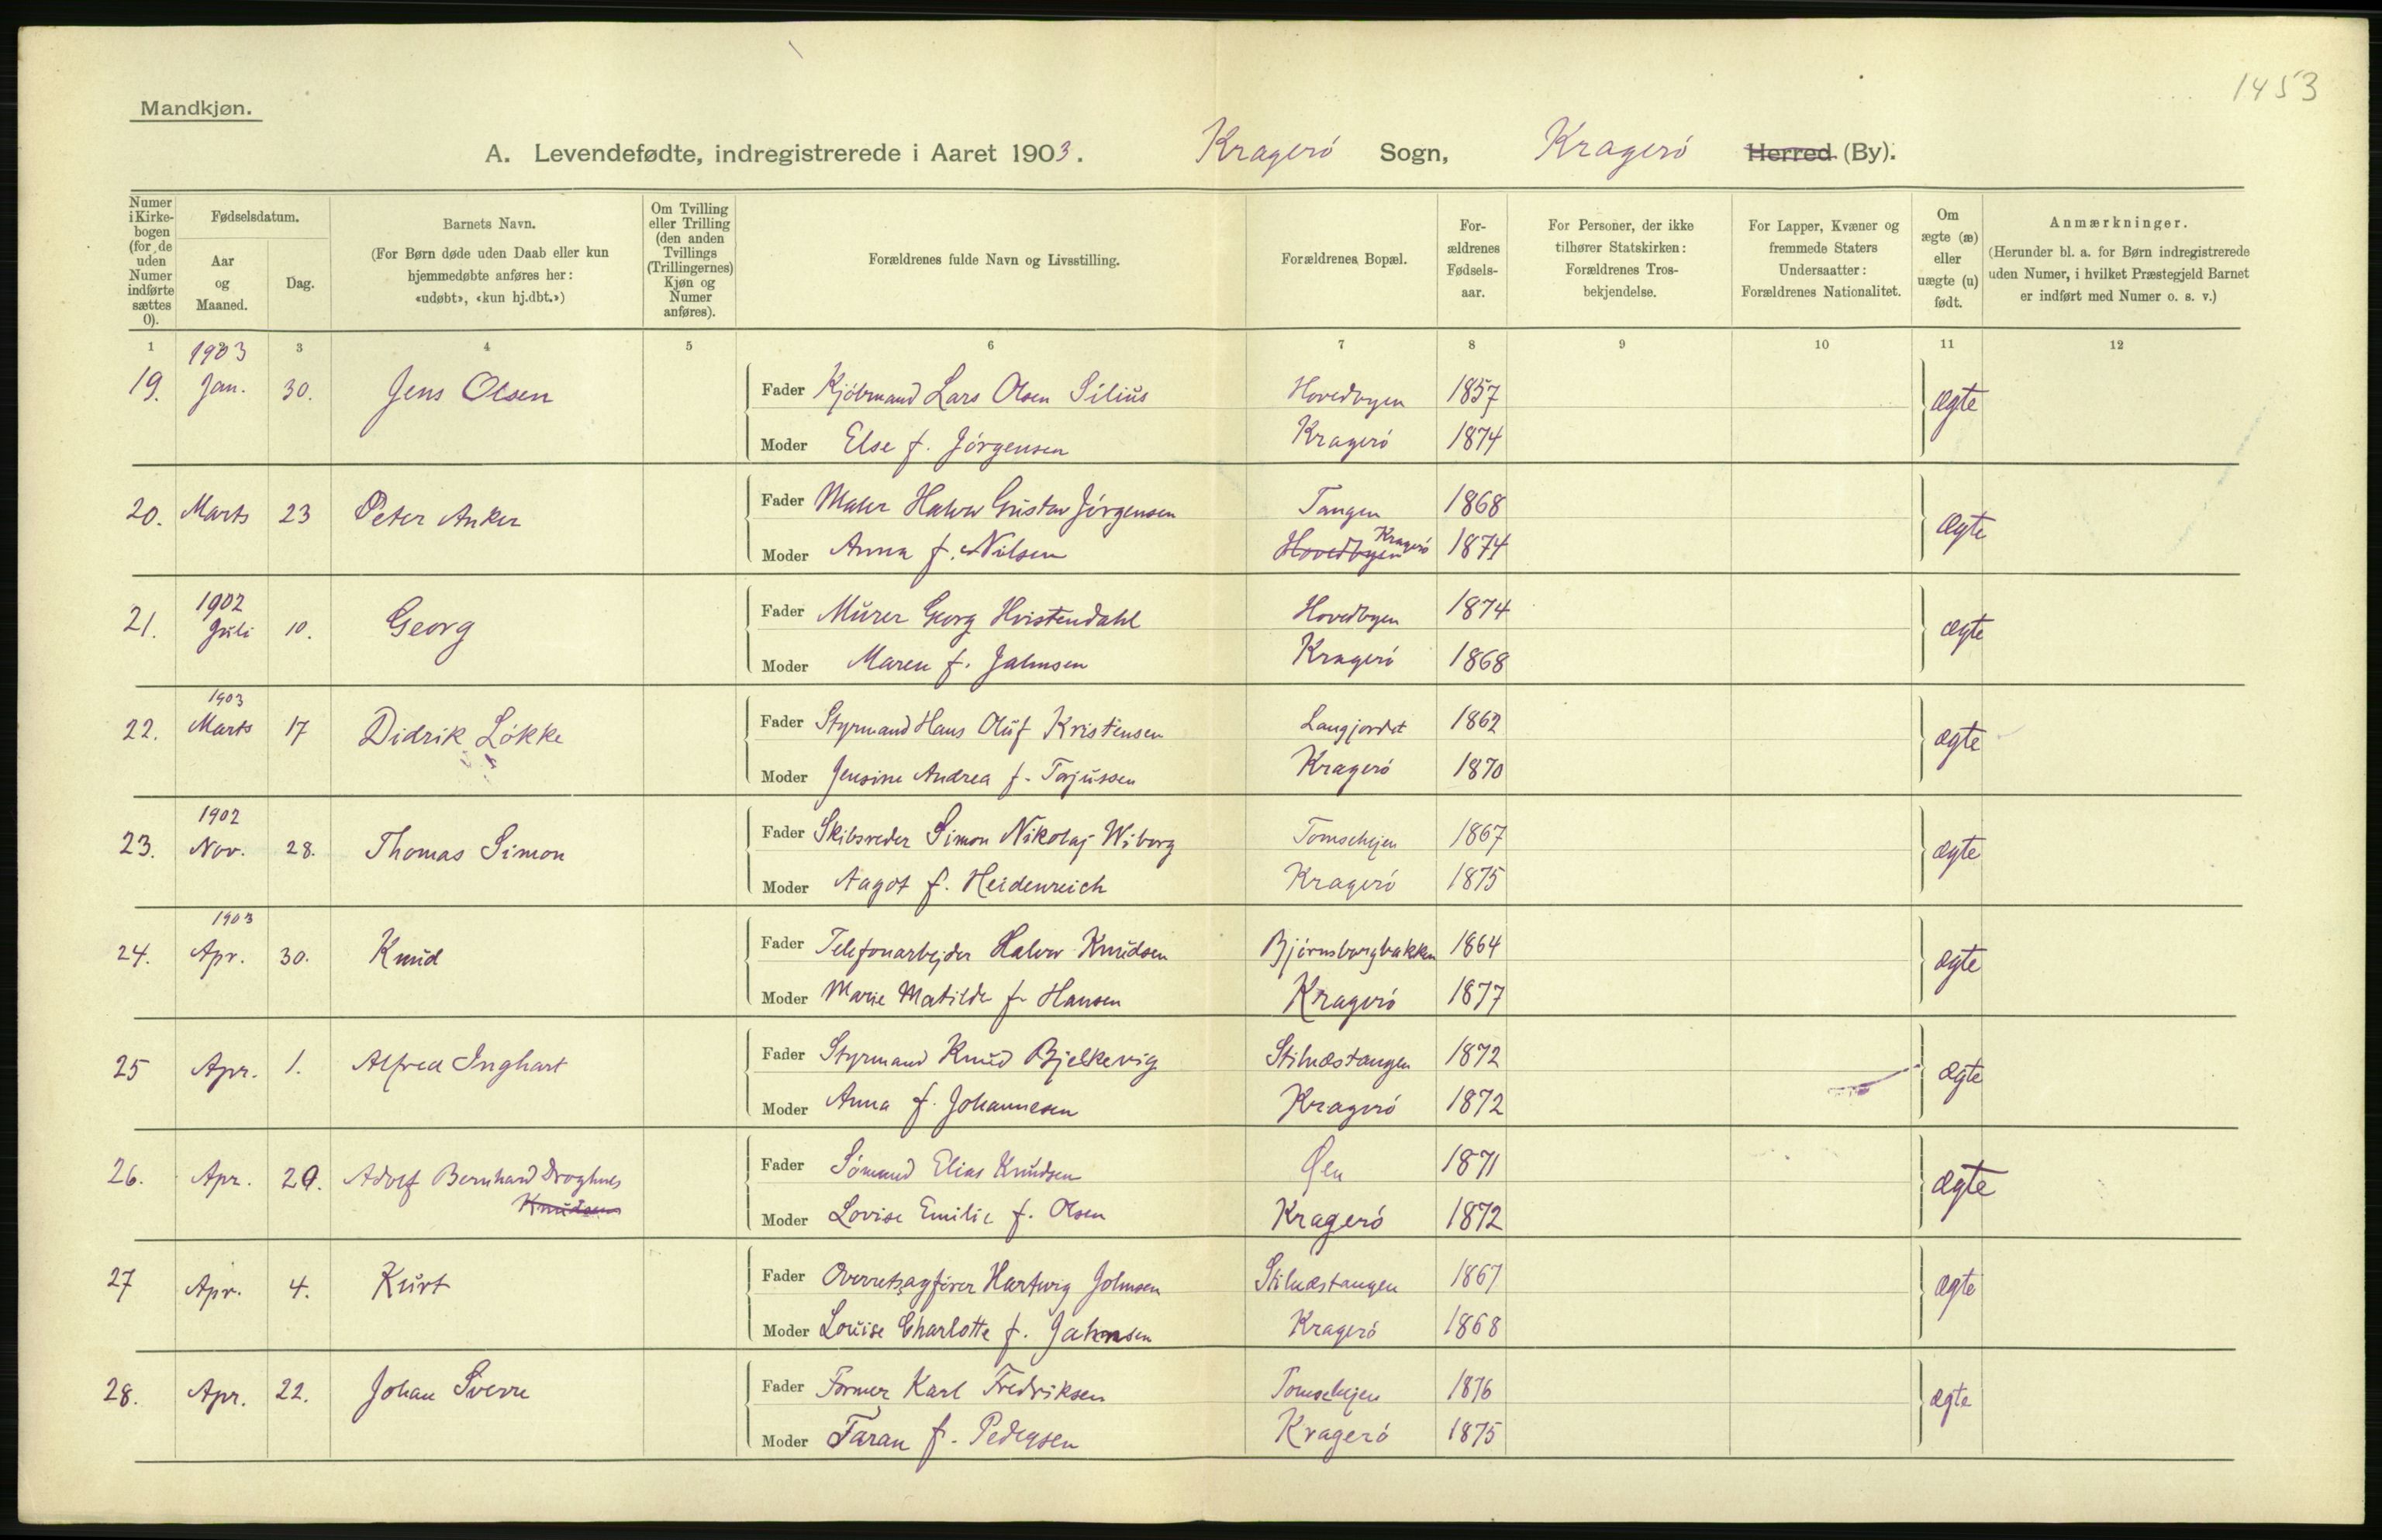 1453
Mandkjøn.
A. Levendefødte, indregistrerede i Aaret 1903. Kragerö Sogn, Kragerö Herred (By).
Numer i Kirkebogen (for de uden Numer indførte sættes 0).
Fødselsdatum.
Aar og Maaned.
Dag.
Barnets Navn.
(For Børn døde uden Daab eller kun hjemmedøbte anføres her: «udøbt», «kun hj.dbt.»)
Om Tvilling eller Trilling (den anden Tvillings (Trillingernes) Kjøn og Numer anføres).
Forældrenes fulde Navn og Livsstilling.
Forældrenes Bopæl.
For-ældrenes Fødsels-aar.
For Personer, der ikke tilhører Statskirken: Forældrenes Tros-bekjendelse.
For Lapper, Kvæner og fremmede Staters Undersaatter: Forældrenes Nationalitet.
Om ægte (æ) eller uægte (u) født.
Anmærkninger.
(Herunder bl. a. for Børn indregistrerede uden Numer, i hvilket Præstegjeld Barnet er indført med Numer o. s. v.)
1 3 4 5 6 7 8 9 10 11 12
1903
19. Jan. 30. Jens Olsen Fader Kjöbmand Lars Olsen Silius Hovedbyen 1857 ægte
Moder Else f. Jörgensen Kragerö 1874
20. Marts 23 Peter Anker Fader Maler Halvor Gustav Jörgensen Tangen 1868 ægte
Moder Anna f. Nilsen Hovedbyen Kragerö 1874
1902
21. Juli 10. Georg Fader Murer Georg Hvistendahl Hovedbyen 1874 ægte
Moder Maren f. Jahnsen Kragerö 1868
1903
22. Marts 17 Didrik Lökke Fader Styrmand Hans Oluf Kristensen Langjordet 1862 ægte
Moder Jensine Andrea f. Torjussen Kragerö 1870
1902
23. Nov. 28. Thomas Simon Fader Skibsreder Simon Nikolaj Wiborg 1867 ægte
Moder Aagot f. Heidenreich Kragerö 1875
1903
24. Apr. 30. Knud Fader Telefonarbejder Halvor Knudsen Björnsborgbakken 1864 ægte
Moder Marie Matilde f. Hansen Kragerö 1877
25 Apr. 1. Alfred Inghart Fader Styrmand Knud Bjelkevig Stilnæstangen 1872 ægte
Moder Anna f. Johannesen Kragerö 1872
26. Apr. 29. Adolf Bernhard Droghnes Fader Sömand Elias Knudsen Øen 1871 ægte
Knudsen
Moder Lovise Emilie f. Olsen Kragerö 1872
27 Apr. 4. Kurt Fader Overretsagförer Hartvig Johnsen Stilnæstangen 1867 ægte
Moder Louise Charlotte f. Jahnsen Kragerö 1868
28. Apr. 22. Johan Sverre Fader Former Karl Fredriksen 1876 ægte
Moder Taran f. Pedersen Kragerö 1875